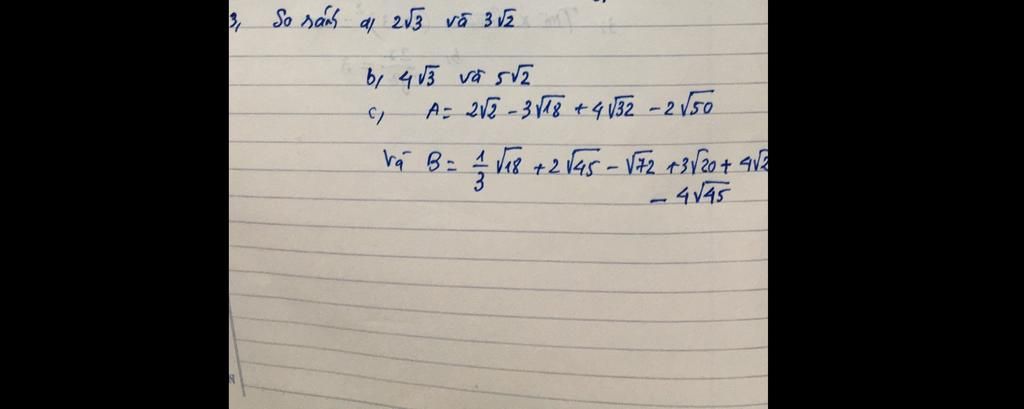 3, So sánh a) 2√3 và 3√2
b, 4√3 và 5√2
c, A = 2√2 - 3√18 + 4√32 - 2√50
Và B = 1/3 √18 + 2√45 - √72 + 3√20 + 4√2
- 4√45